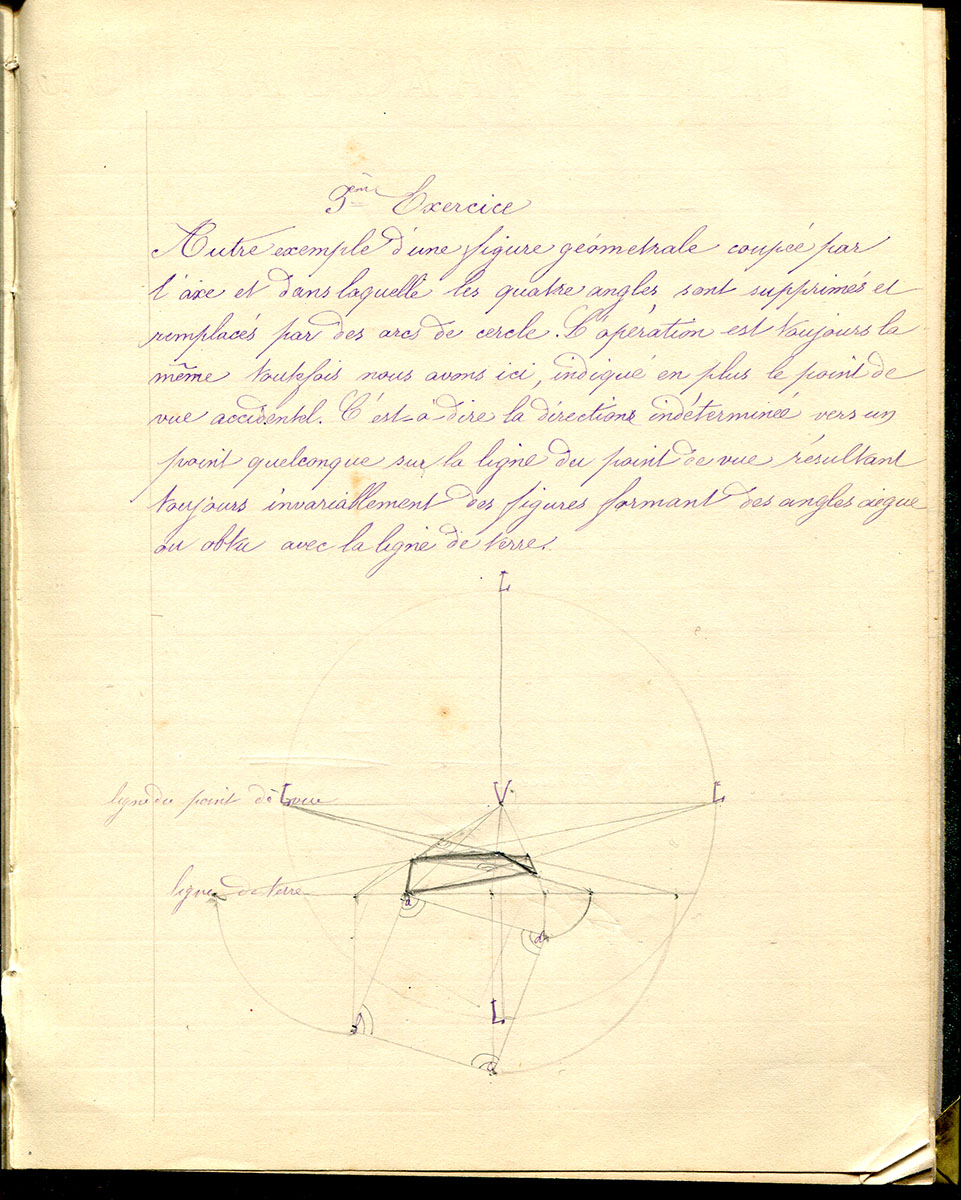 9ème Exercice
Autre exemple d'une figure géometrale coupée par
l'axe et dans laquelle les quatre angles sont supprimés et
remplacés par des arcs de cercle. L'opération est toujours la
même toutefois nous avons ici, indiqué en plus le point de
vue accidentel. C'est-à dire la direction indéterminée vers un
point quelconque sur la ligne du point de vue résultant
toujours invariablement des figures formant des angles aigue
ou obtu avec la ligne de terre.
L
ligne du point de vue L V L
ligne de terre
a
d
L